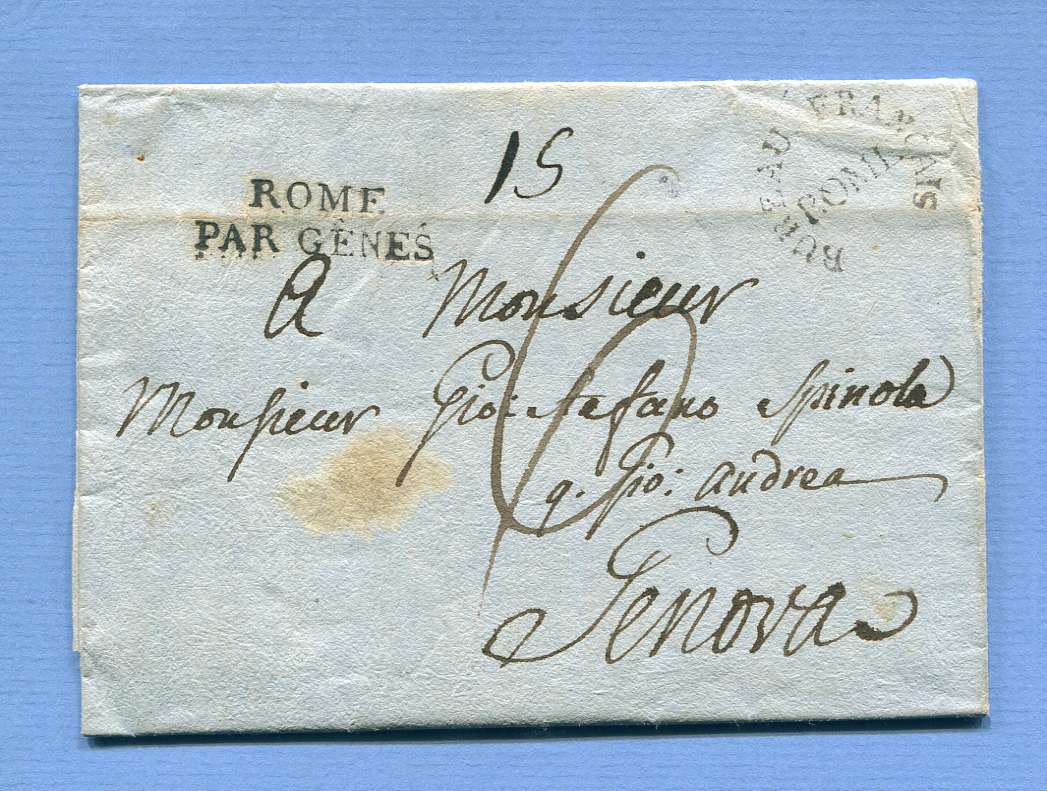 15
BUREAU FRANÇAIS
ROME
ROME
PAR GÊNES
6
A Monsieur
Monsieur Gio: Stefano Spinola
q. Gio: Andrea
Genova